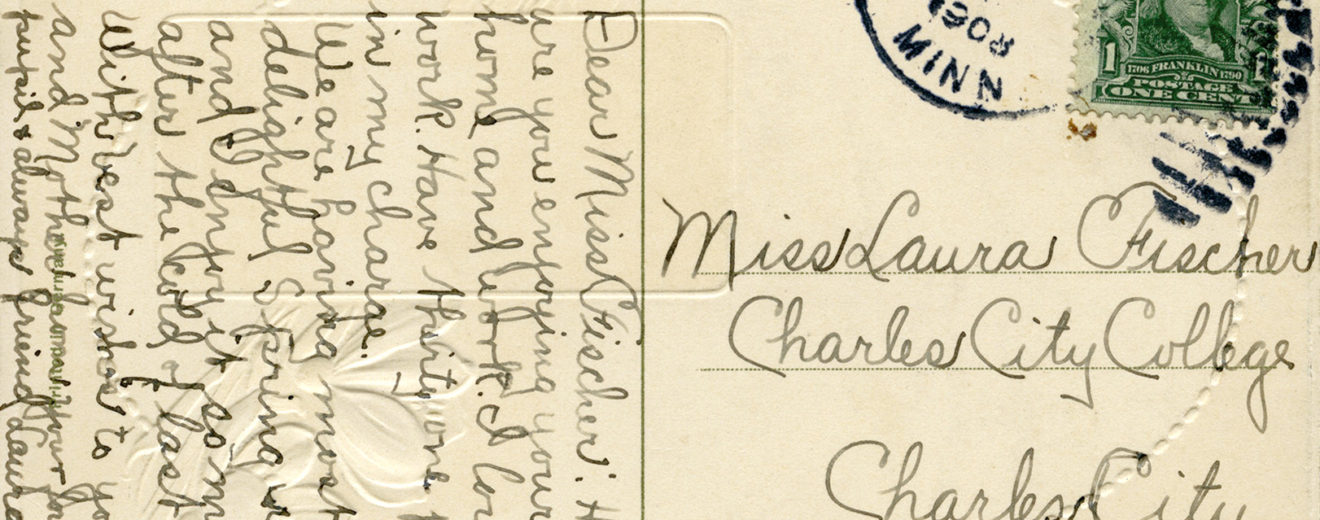 Dear Miss Fischer: H
are you enjoying your
home and work. I lov
work. Have thirty one
in my charge.
We are having most
delightful Spring w
and I enjoy it so m
after the cold of last
With best wishes to yo
and Mother your
pupil & always friend Laura
MINN
1
1706 FRANKLIN 1790
POSTAGE
ONE CENT
Miss Laura Fischer
Charles City College
Charles City